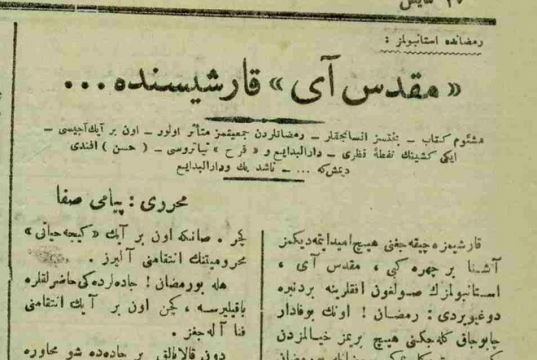 رمضانده استانبولمز :
«مقدس آی» قارشیسنده...
مشئوم کتاب ـ بختسز انسانجقلر ـ رمضانلردن جمعیتمز متأثر اولور ـ اون بر آیك آجیسی ـ
ایکی کشینك نقطهٔ نظری ـ دارالبدایع و « فرح » تیاتروسی ـ ( حسن ) افندی
دیمش‌که ... ـ ناشد بك ودارالبدایع
محرری : پیامی صفا
قارشیمزه چیقه‌جغنی هیچ امیدایتمه‌دیکمز
آشنا بر چهره کبی ، مقدس آی ،
استانبولمزك صولغون افقلرینه بردنبره
دوغیویردی : رمضان ! اونك بوقادار
چابوجاق کله‌جکنی هیچ بریمز خیالمزدن
کچر . صانکه اون بر آیك «کیجه حیاتی»
محرومیتنك انتقامنی آلیرز .
هله بورمضان ! جاده‌لرده‌کی حاضرلقلره
باقیلیرسه ، کچن اون بر آیك انتقامنی
فنا آله‌جغز .
دون قالافلق بر جاده‌ده شو محاوره